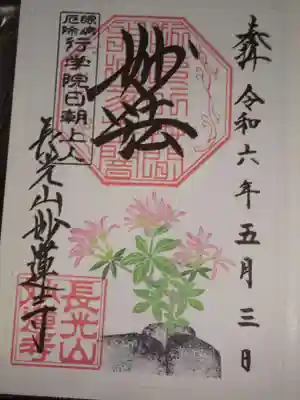 奉拝
令和六年五月三日
妙法
眼病
厄除
行学院日朝上人
長光山妙蓮寺
長光山
妙蓮寺